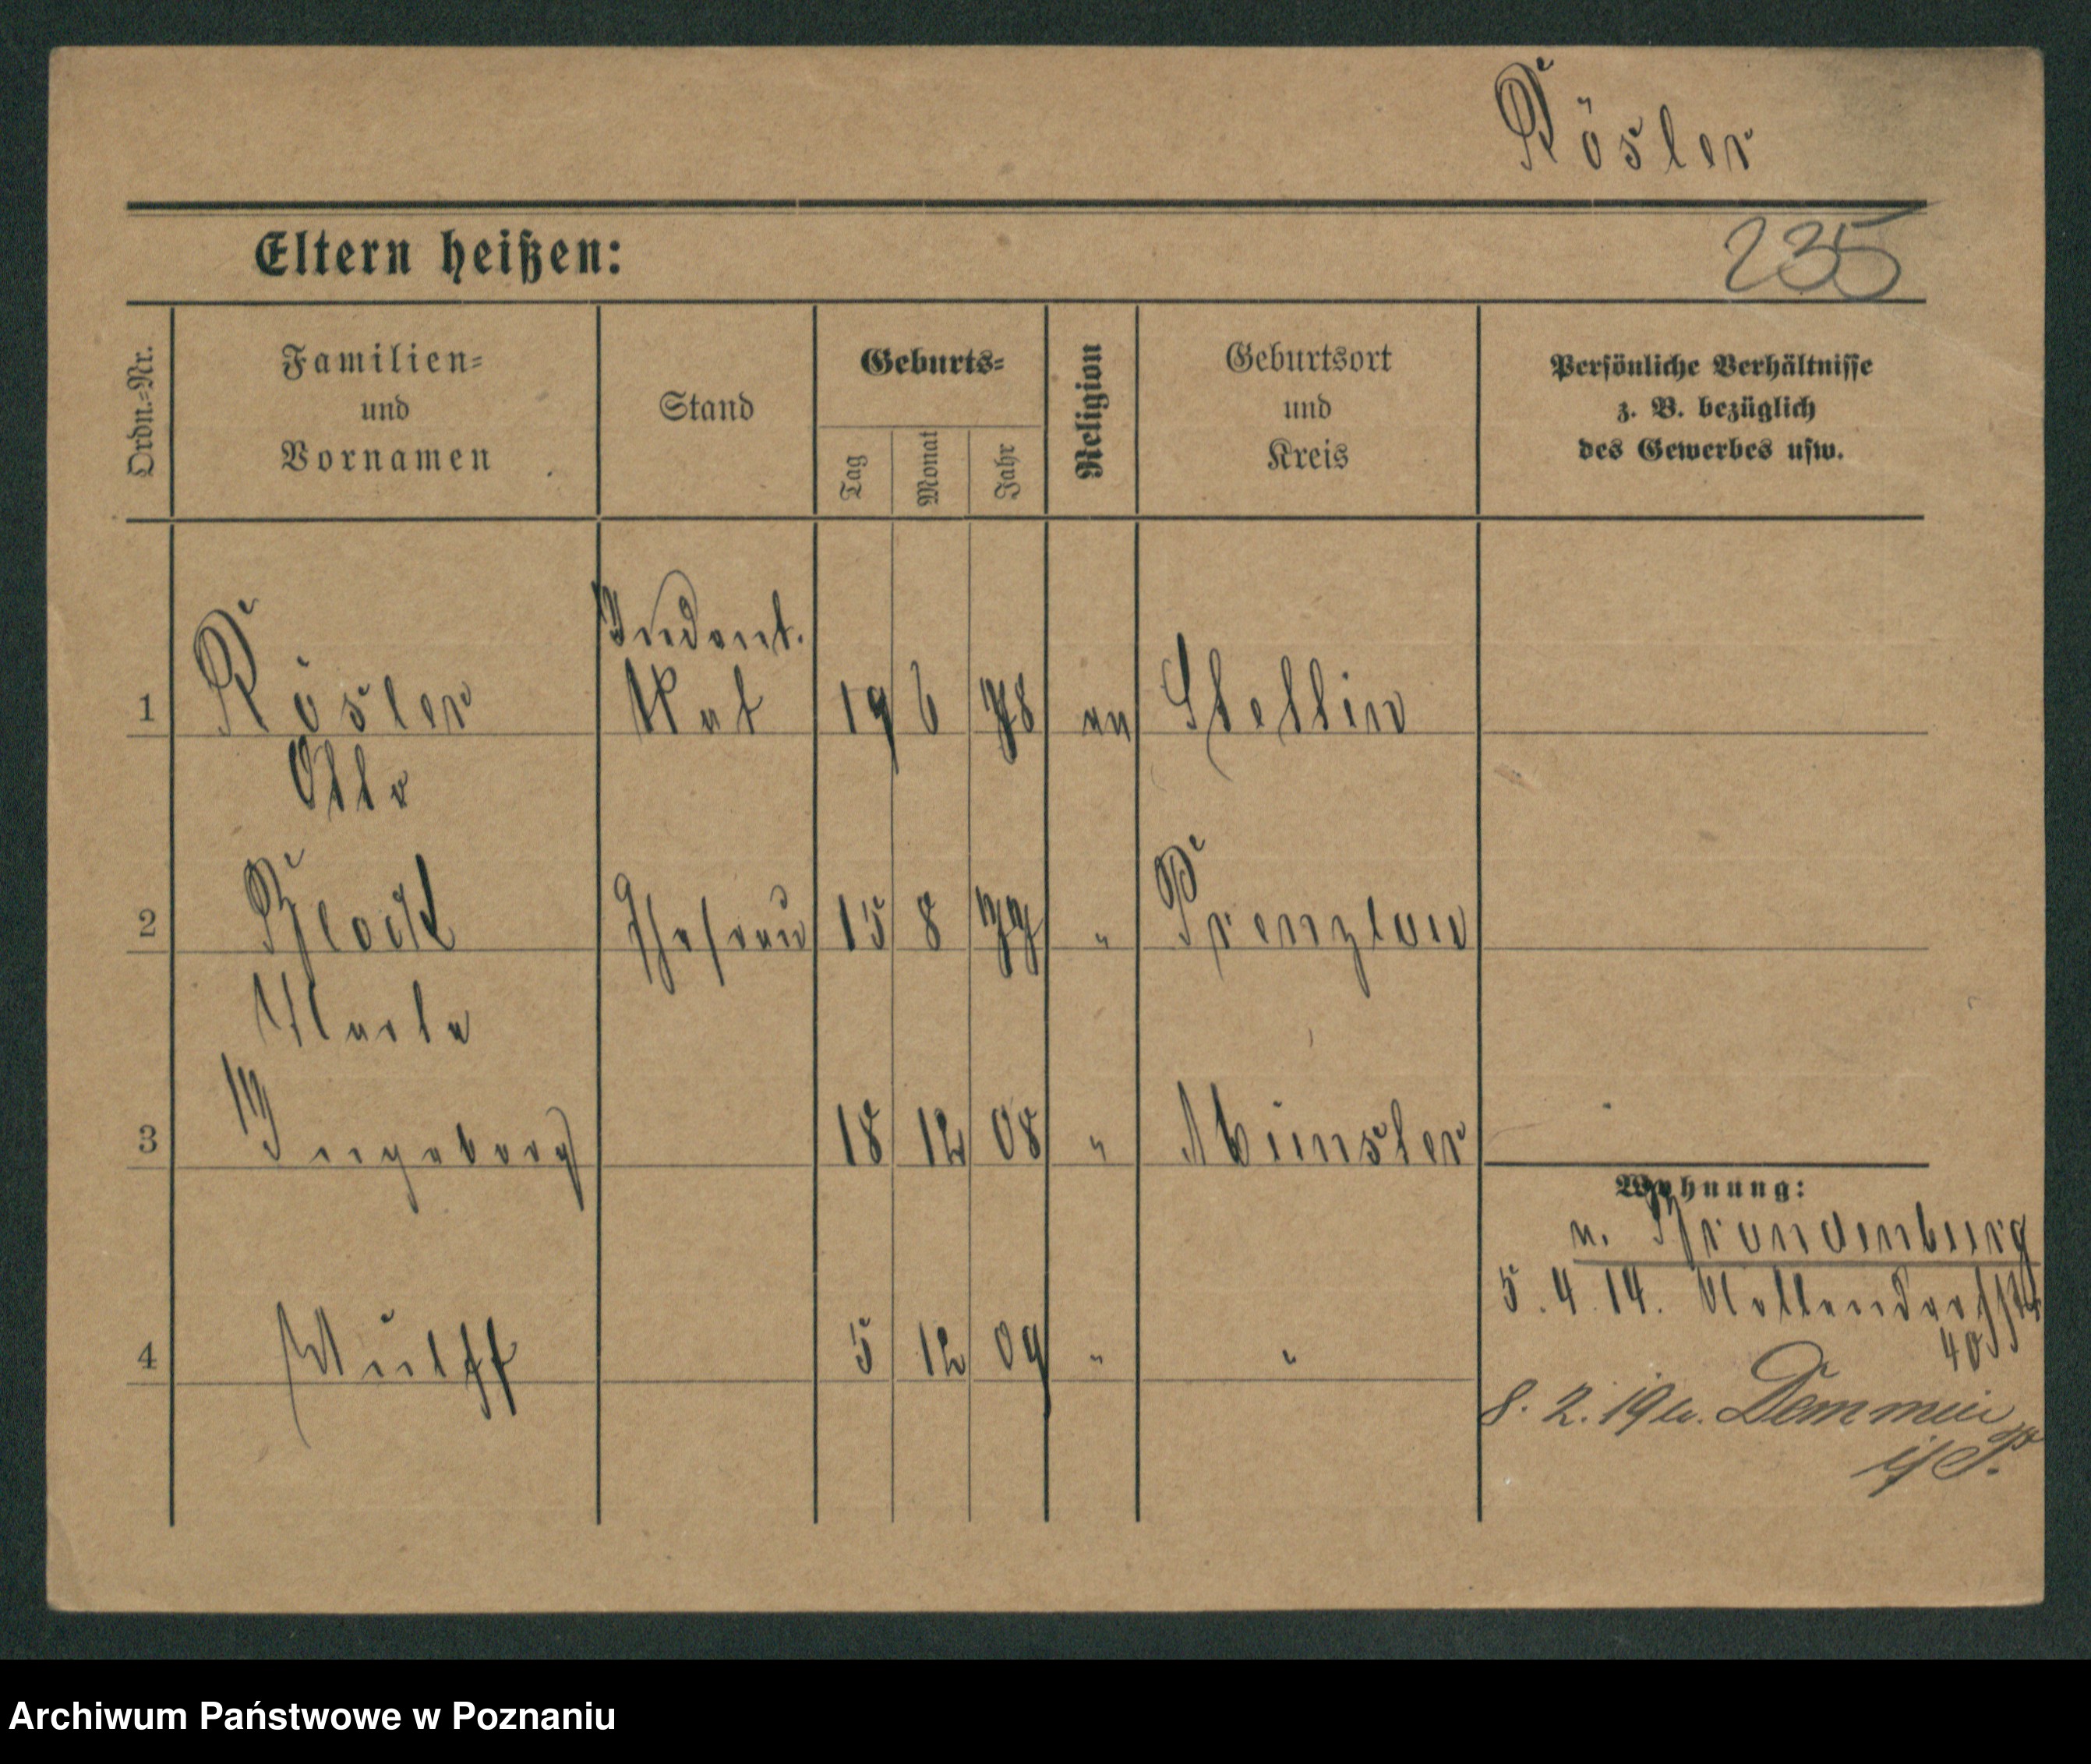 Rösler
Eltern heißen:
235
Ordn.-Nr.
Familien-
und
Vornamen
Stand
Geburts-
Tag
Monat
Jahr
Religion
Geburtsort
und
Kreis
Persönliche Verhältnisse
z. B. bezüglich
des Gewerbes usw.
Intendant.
1 Rösler Rat 19 6 78 ev Stettin
Otto
2 Block Ehefrau 15 8 79 " Prenzlau
3 Ingeborg 18 12 08 " Münster
Wohnung:
v. Brandenburg
5. 4. 14. Nollendorfstr
40
4 Wulff 5 12 09 " "
8. 2. 19 n. Demmin
i/P.
Archiwum Państwowe w Poznaniu